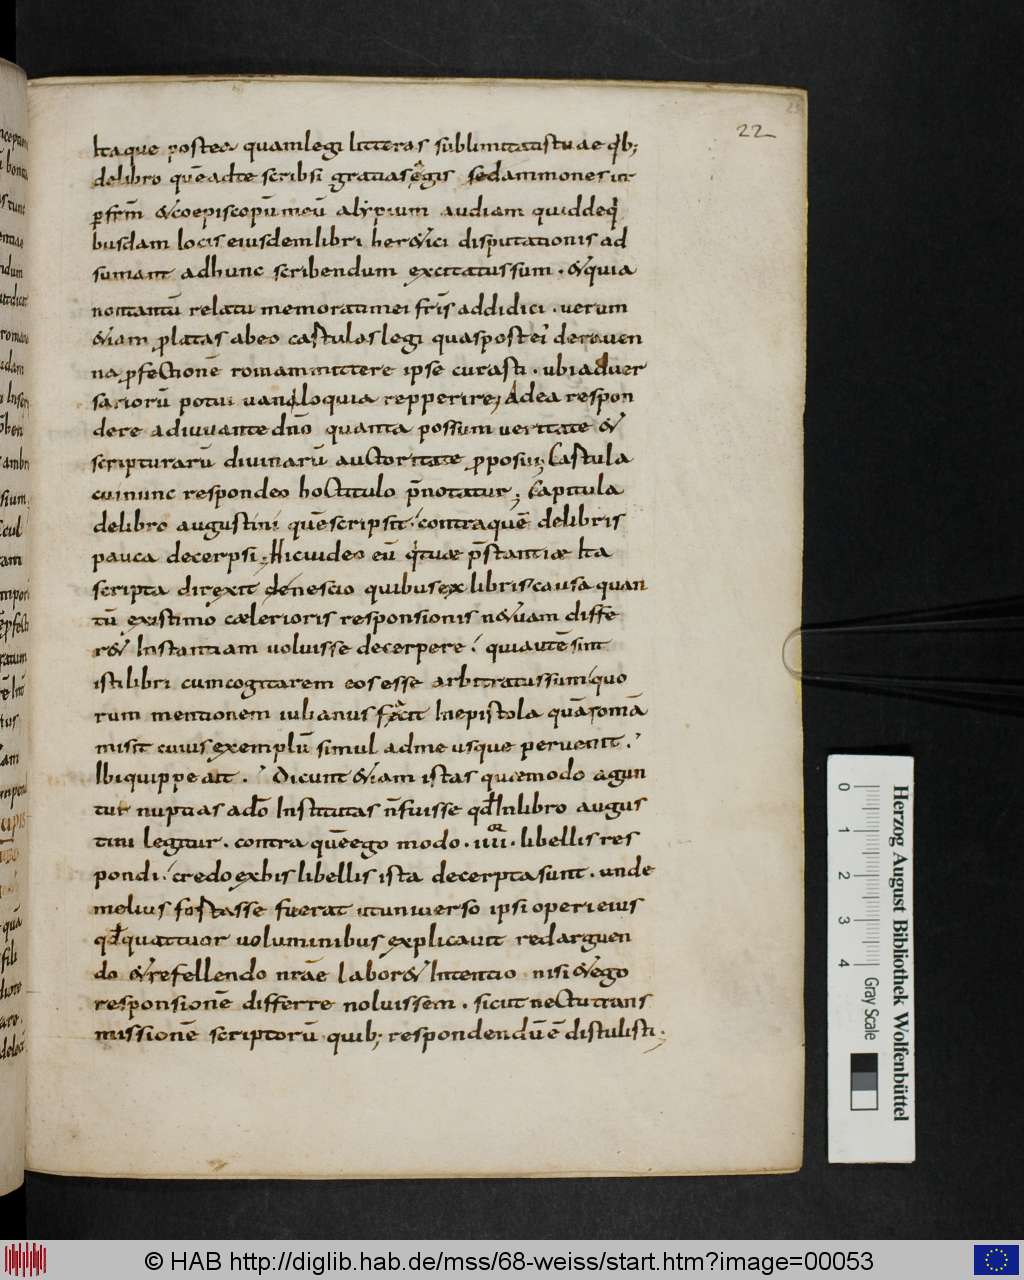 22
Itaque postea quam legi litteras sublimitatis tuae qⁱb;
de libro quē ad te scribsi gratias egis sed ammones ut
ꝑ frm̄ &coepiscopū meū alypium audiam quid de qⁱ
busdam locis eiusdem libri her&ici disputationis ad
sumant ad hunc scribendum excitatus sum . &quia
non tantū relatu memorati mei fr̄is addidici . uerum
&iam ꝓlatas ab eo cartulas legi quas post ei de rauen
na ꝓfectionē romam mittere ipse curasti . ubi aduer
sariorū potui uaniloquia repperire; Ad ea respon
dere adiuuante dn̄o quanta possum ueritate &
scripturarū diuinarū auctoritate ꝓposui; Cartula
cui nunc respondeo hoc titulo p̄notatur; Capitula
de libro augustini quē scripsit contra quē de libris
pauca decerpsi; Hic uideo eū qⁱ tuae p̄stantiae Ita
scripta direxit de nescio quibus ex libris causa quan
tū existimo caelerioris responsionis ne tuam diffe
r& Instantiam uoluisse decerpere qui autē sint
isti libri cum cogitarem eos esse arbitratus sum quo
rum mentionem iulianus facit In epistola quā romā
misit cuius exemplū simul ad me usque peruenit .
Ibi quippe ait . Dicunt &iam istas quae modo agun
tur nuptias a dō Institutas n̄ fuisse qđ In libro augus
tini legitur . contra quē ego modo . iiii . libellis res
pondi credo ex his libellis ista decerpta sunt . unde
melius fortasse fuerat ut uniuerso ipsi operi eius
qđ quattuor uoluminibus explicauit redarguen
do &refellendo nr̄ae labor& Intentio nisi &ego
responsionē differre noluissem . sicut nec tu trans
missionē scriptorū quib; respondendū ē distulisti;
0 1 2 3 4
Herzog August Bibliothek Wolfenbüttel
Gray Scale
© HAB http://diglib.hab.de/mss/68-weiss/start.htm?image=00053